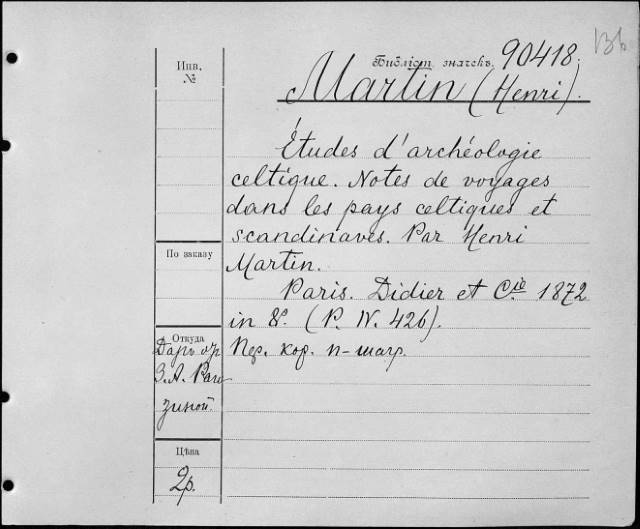 13b
Библіот. значекъ. 90418.
Инв.
№
Martin (Henri).
Études d'archéologie
celtique. Notes de voyages
dans les pays celtiques et
scandinaves. Par Henri
Martin.
По заказу
Paris. Didier et Cie. 1872
in 8º. (P. IV. 426).
Откуда
Даръ отъ
З. А. Раго
зиной.
Пер. кор. п-шагр.
Цѣна
2р.